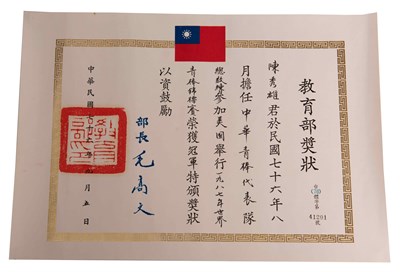 教育部獎狀
41201
號
陳秀雄君於民國七十六年八
月擔任中華青棒代表隊
總教練參加美國舉行一九八七年世界
青棒錦標賽榮獲冠軍特頒獎狀
以資鼓勵
部長 毛高文
中華民國七十
月五日